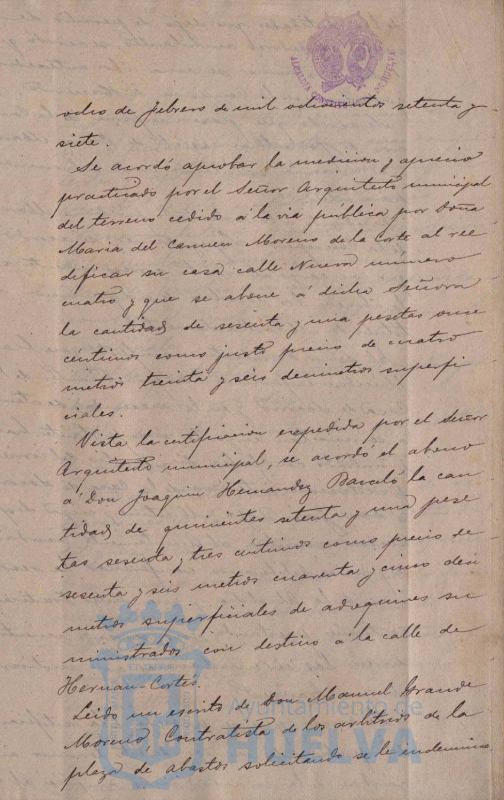 ocho de Febrero de mil ochocientos setenta y
siete.
Se acordó aprobar la medicion y aprecio
practicado por el Señor Arquitecto municipal
del terreno cedido á la via pública por Doña
Maria del Carmen Moreno de la Corte al ree
dificar su casa calle Nueva número
cuatro y que se abone á dicha Señora
la cantidad de sesenta y una pesetas once
centimos como justo precio de cuatro
metros treinta y seis decimetros superfi
ciales.
Vista la certificacion expedida por el Señor
Arquitecto municipal, se acordó el abono
á Don Joaquin Hernandez Barceló la can
tidad de quinientas setenta y una pese
tas sesenta y tres céntimos como precio de
sesenta y seis metros cuarenta y cinco deci
metros superficiales de adoquines su
ministrados con destino á la calle de
Hernan-Cortés.
Leido un escrito de Don Manuel Grande
Moreno, Contratista de los arbitrios de la
plaza de abastos solicitando se le indemnice
Ayuntamiento de
HUELVA